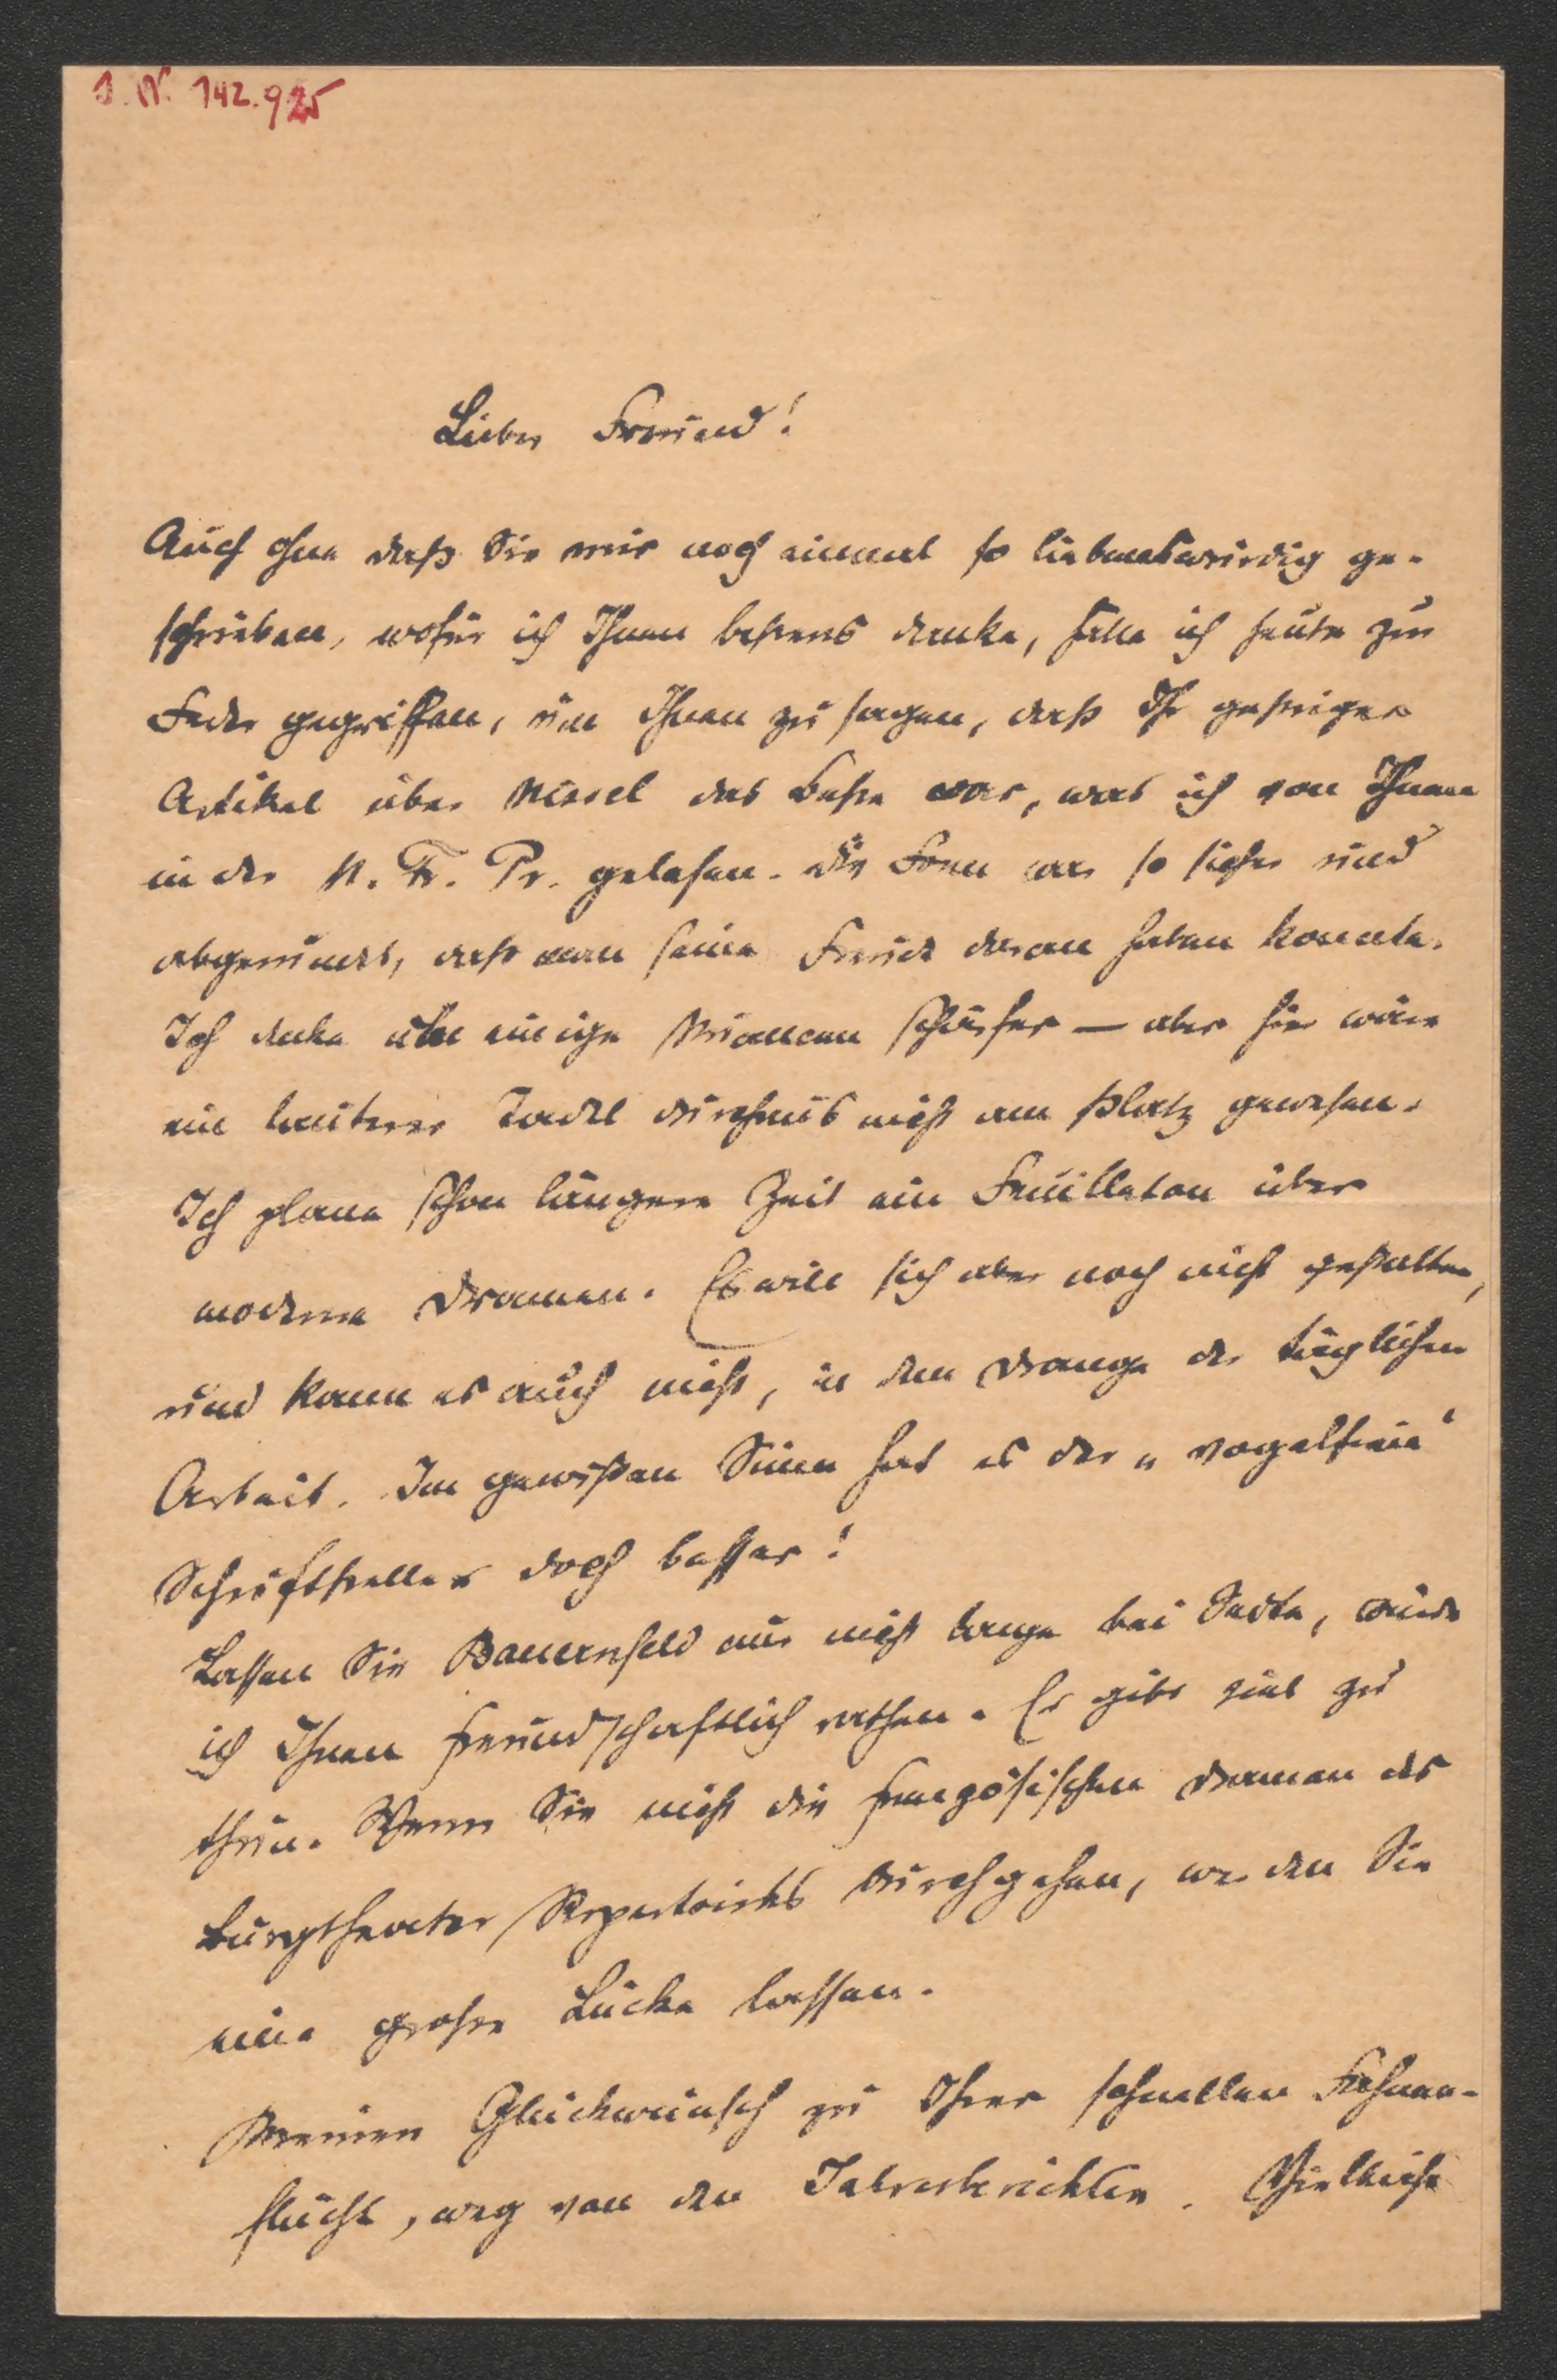 I. N. 142.925
Lieber Freund!
Auch ohne daß Sie mir noch einmal so liebenswürdig ge-
schrieben, wofür ich Ihnen bestens danke, hätte ich heute zur
Feder gegriffen, um Ihnen zu sagen, daß Ihr gestriger
Artikel über Nissel das Beste war, was ich von Ihnen
in der N. Fr. Pr. gelesen. Die Form war so sicher und
abgerundet, daß man seine Freude daran haben konnte.
Ich denke um einige Nuancen schärfer — aber hier wäre
ein lauterer Tadel durchaus nicht am Platz gewesen.
Ich plane schon längere Zeit ein Feuilleton über
moderne Dramen. Es will sich aber noch nicht gestalten,
und kann es auch nicht, in dem Drange der täglichen
Arbeit. Im gewißen Sinne hat es der „vogelfreie“
Schriftsteller doch besser!
Lassen Sie Bauernfeld nur nicht lange bei Seite, würde
ich Ihnen freundschaftlich rathen. Er gibt viel zu
thun. Wenn Sie nicht die französischen Dramen des
Burgtheater Repertoirs durchgehen, werden Sie
eine große Lücke lassen.
Meinen Glückwunsch zu Ihrer schnellen Fahnen-
flucht, weg von den Jahresberichten. Vielleicht